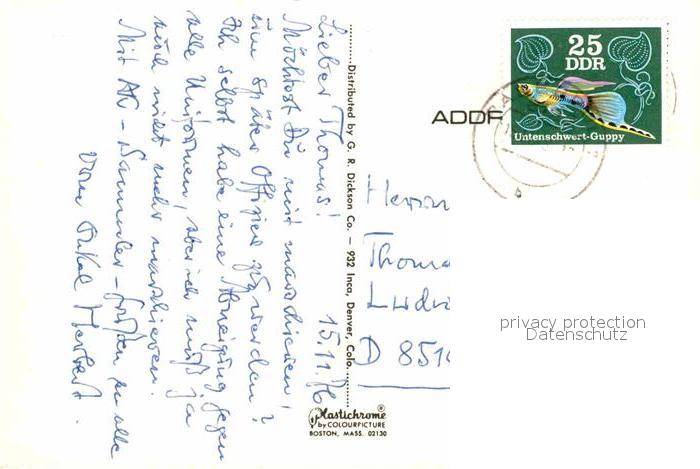 Lieber Thomas! 15.11.76
Möchtest Du mit marschieren,
um später Offizier zu werden?
Ich selbst habe eine Abneigung gegen
alle Uniformen, aber ich muß ja
auch nicht mehr marschieren.
Mit AK-Sammler-Grüßen an alle
vom Onkel Herbert.
Distributed by G. R. Dickson Co. — 932 Inca, Denver, Colo.
Plastichrome®
by COLOURPICTURE
BOSTON, MASS. 02130
25
DDR
Untenschwert-Guppy
ADDR
Herrn
Thoma
Ludw
D 851
privacy protection
Datenschutz